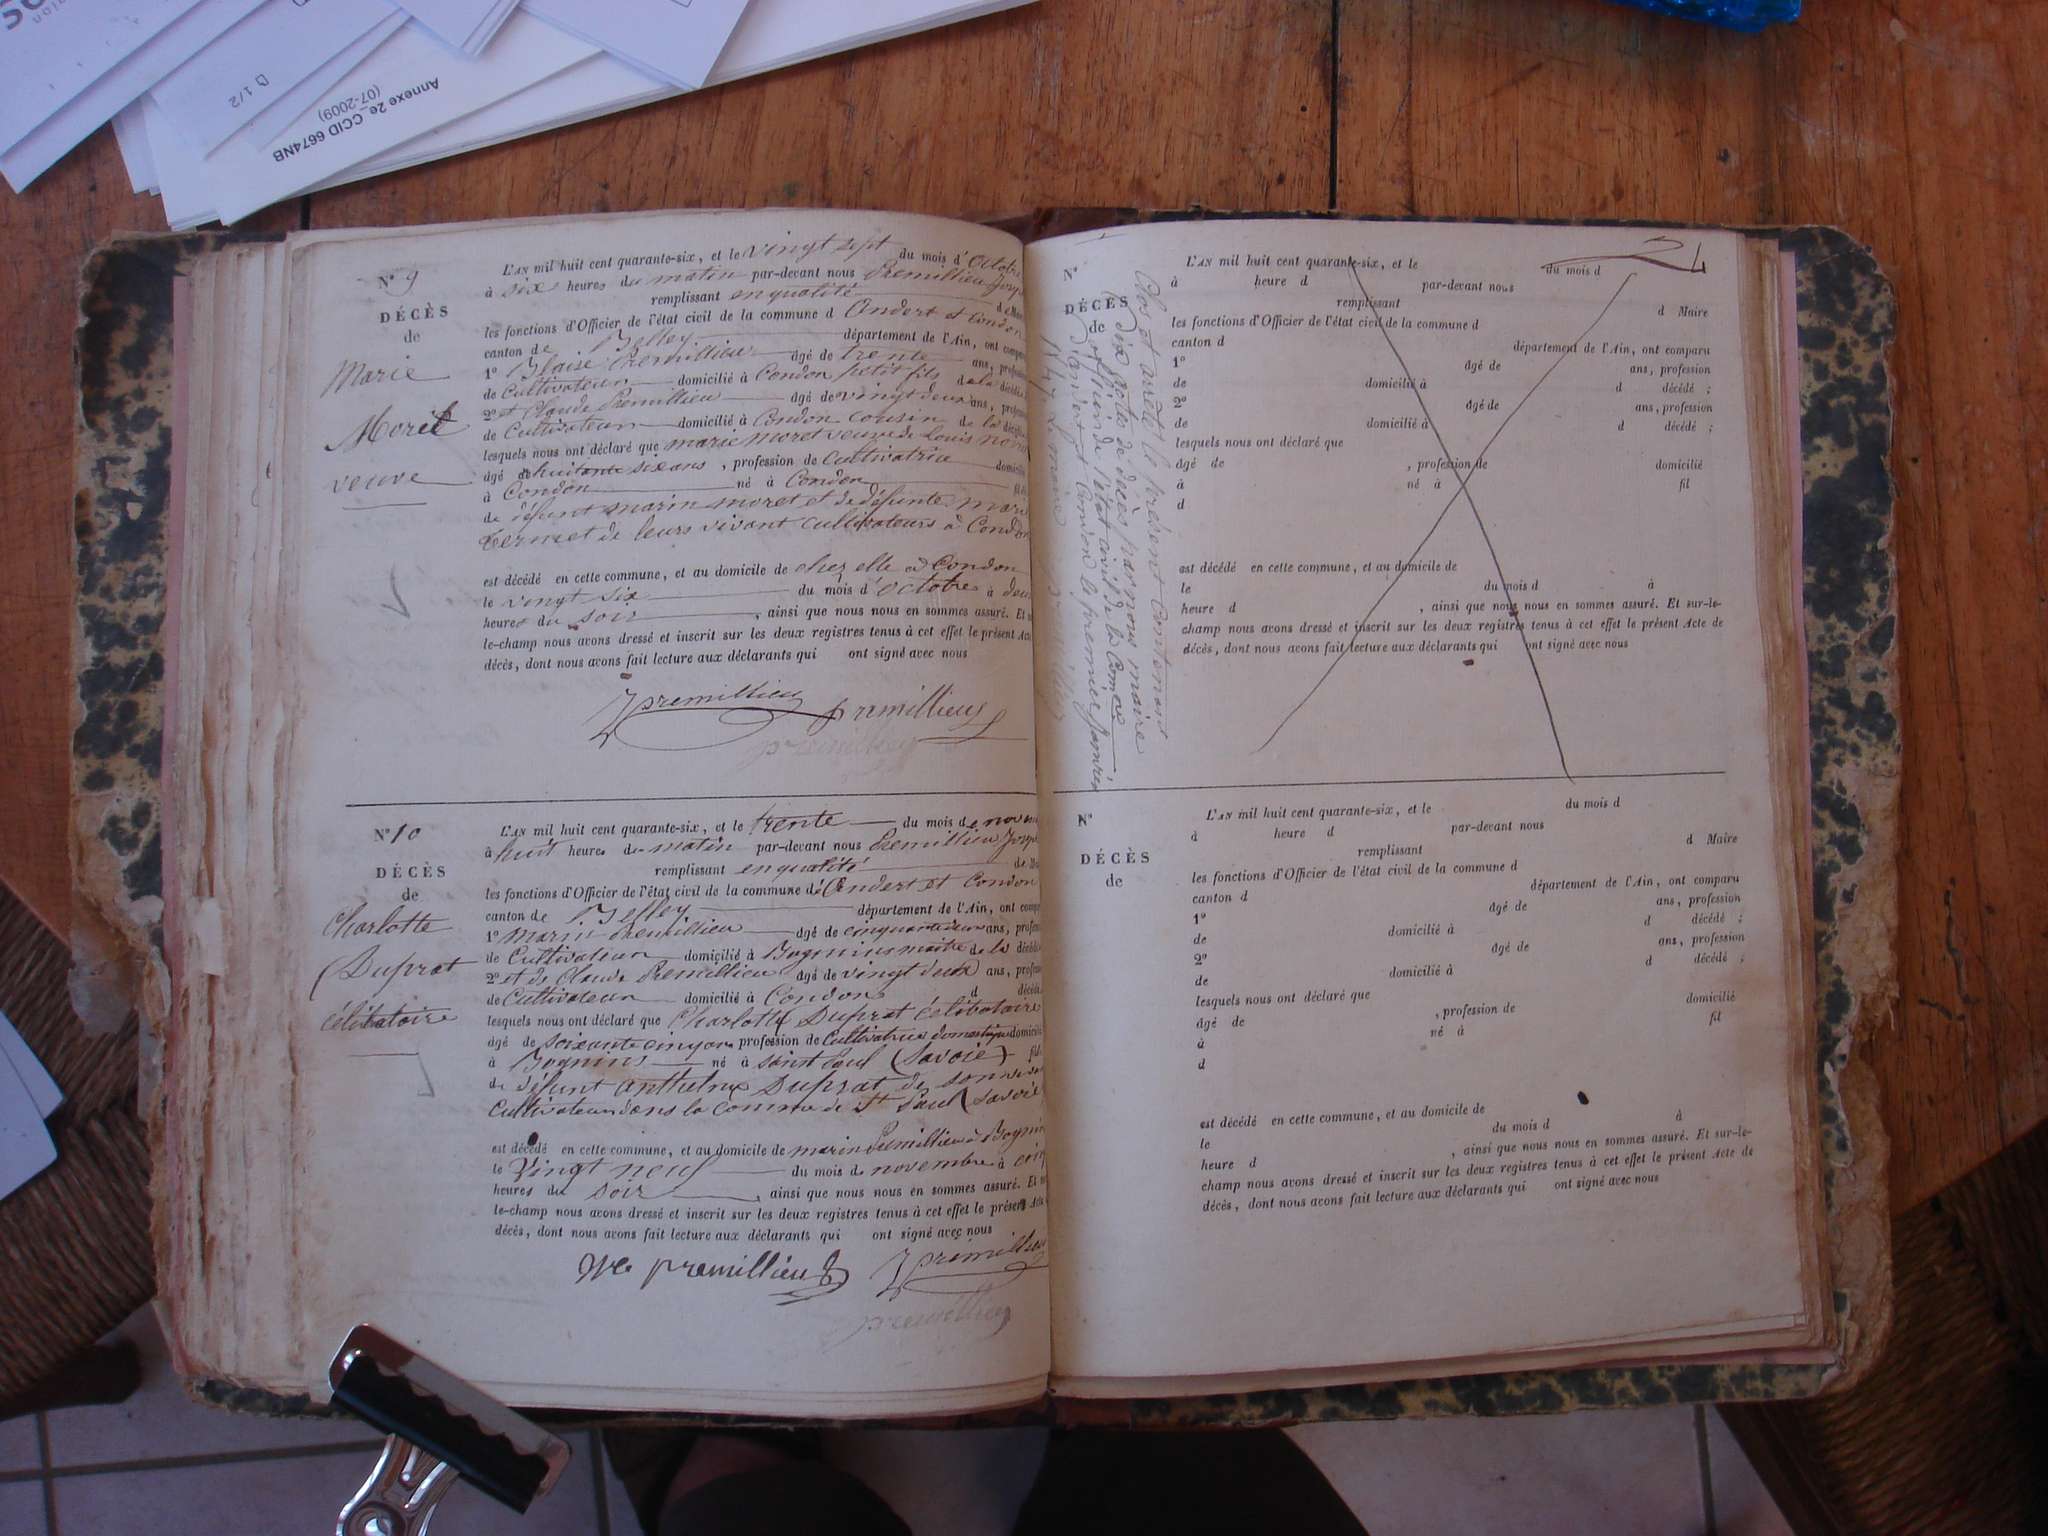 Annexe 2e_CCID 6674NB
(07-2009)
1/2
N° 9
DÉCÈS
de
Marie
Moret
veuve
L'AN mil huit cent quarante-six, et le vingt sept du mois d'Octobre
à six heures du matin par-devant nous Premillieu
remplissant en qualité
les fonctions d'Officier de l'état civil de la commune d Andert et Condon
canton de Belley département de l'Ain, ont compa
1° Blaise Premillieu âgé de trente ans, profes
de Cultivateur domicilié à Condon petit fils de la décéd
2° et Claude Premillieu âgé de vingt deux ans, profess
de Cultivateur domicilié à Condon cousin de la
lesquels nous ont déclaré que marie moret veuve de Louis
âgé de huitante six ans, profession de Cultivatrice domicilié
à Condon né à Condon fil
de défunt marin moret et de défunte Marie
de leurs vivant cultivateurs à Condon
est décédé en cette commune, et au domicile de chez elle à Condon
le vingt six du mois d'octobre à deux
heures du soir, ainsi que nous nous en sommes assuré. Et
le-champ nous avons dressé et inscrit sur les deux registres tenus à cet effet le présent Acte
décès, dont nous avons fait lecture aux déclarants qui ont signé avec nous
premillieu premillieu
N° 10
DÉCÈS
de
Charlotte
Duprat
célibatoire
L'AN mil huit cent quarante-six, et le trente du mois de novem
à huit heures du matin par-devant nous Premillieu
remplissant en qualité
les fonctions d'Officier de l'état civil de la commune d'Andert et Condon
canton de Belley département de l'Ain, ont comp
1° marin Premillieu âgé de cinquante deux ans, profes
de Cultivateur domicilié à Bognins maitre de la décéd
2° et de Claude Premillieu âgé de vingt deux ans, profes
de Cultivateur domicilié à Condon d décéd
lesquels nous ont déclaré que Charlotte Duprat célibotaire
âgé de soixante cinq ans profession de Cultivatrice domestique domicilié
à Bognins né à saint Paul (Savoie) fil
de défunt Anthelme Duprat de son
Cultivateur dans la commune de St Paul (Savoie
est décédé en cette commune, et au domicile de marin Premillieu à Bognin
le Vingt neuf du mois de novembre à cinq
heures du soir, ainsi que nous nous en sommes assuré. Et
le-champ nous avons dressé et inscrit sur les deux registres tenus à cet effet le présent Acte
décès, dont nous avons fait lecture aux déclarants qui ont signé avec nous
premillieu premillieu
24
N.
DÉCÈS
de
Clos et arrêté le présent Contenant
dix actes de décès par nous maire
officier de l'état civil de la Commune
d'andert Condon le premier Janvier
1847 Le maire premillieu
L'AN mil huit cent quarante-six, et le du mois d
à heure d par-devant nous
remplissant d Maire
les fonctions d'Officier de l'état civil de la commune d
canton d département de l'Ain, ont comparu
1° âgé de ans, profession
de domicilié à d décédé ;
2° âgé de ans, profession
de domicilié à d décédé ;
lesquels nous ont déclaré que
âgé de , profession de domicilié
à né à fil
d
est décédé en cette commune, et au domicile de
le du mois d à
heure d , ainsi que nous nous en sommes assuré. Et sur-le-
champ nous avons dressé et inscrit sur les deux registres tenus à cet effet le présent Acte de
décès, dont nous avons fait lecture aux déclarants qui ont signé avec nous
N.
DÉCÈS
de
L'AN mil huit cent quarante-six, et le du mois d
à heure d par-devant nous
remplissant d Maire
les fonctions d'Officier de l'état civil de la commune d
canton d département de l'Ain, ont comparu
1° âgé de ans, profession
de domicilié à d décédé ;
2° âgé de ans, profession
de domicilié à d décédé ;
lesquels nous ont déclaré que
âgé de , profession de domicilié
à né à fil
d
est décédé en cette commune, et au domicile de
le du mois d à
heure d , ainsi que nous nous en sommes assuré. Et sur-le-
champ nous avons dressé et inscrit sur les deux registres tenus à cet effet le présent Acte de
décès, dont nous avons fait lecture aux déclarants qui ont signé avec nous